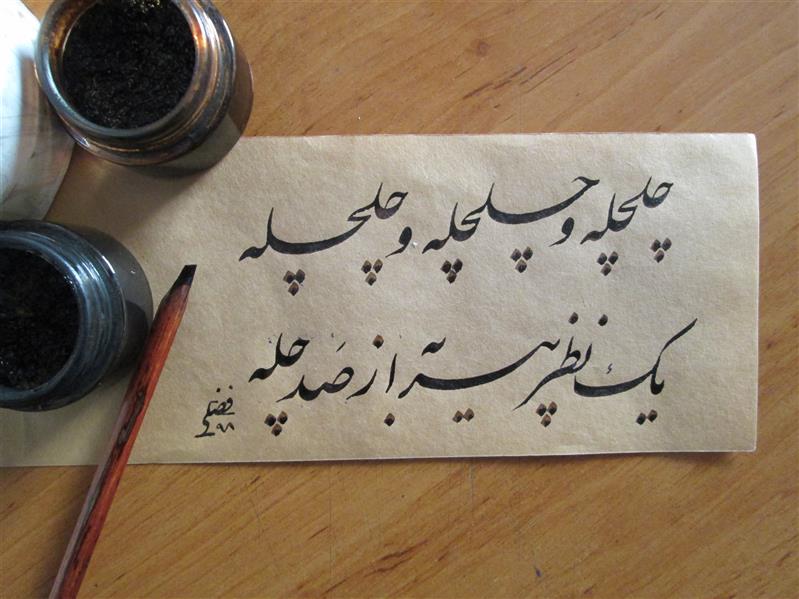 چلچله و چلچله و چلچله
یک نظر پیر به از صد چله
۹۸